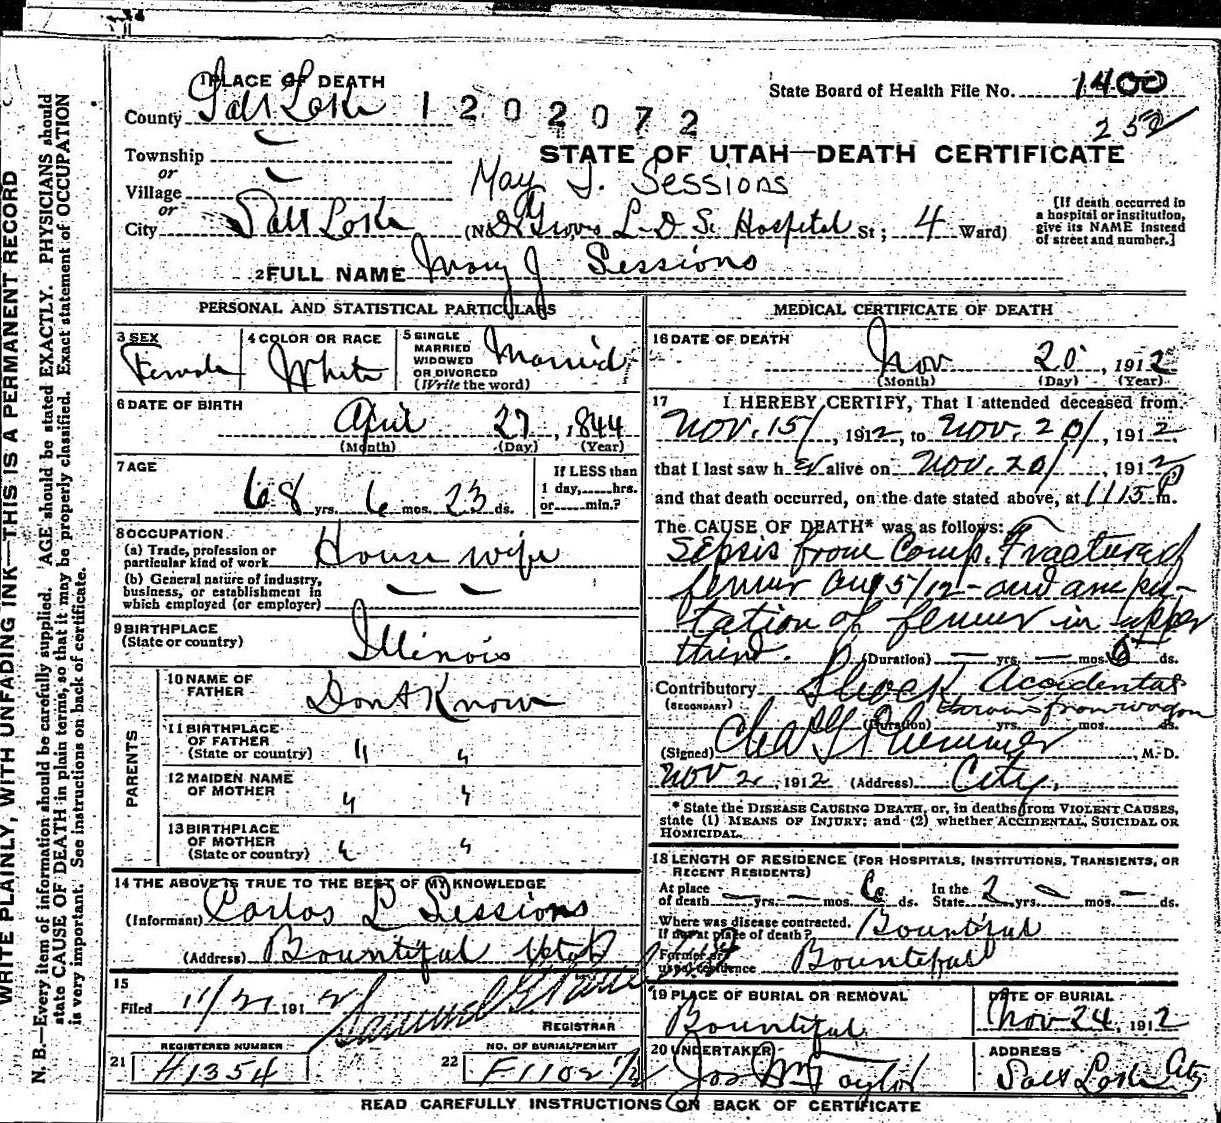 WRITE PLAINLY, WITH UNFADING INK—THIS IS A PERMANENT RECORD
N. B.—Every item of information should be carefully supplied. AGE should be stated EXACTLY. PHYSICIANS should
state CAUSE OF DEATH in plain terms, so that it may be properly classified. Exact statement of OCCUPATION
is very important. See instructions on back of certificate.
1 PLACE OF DEATH
State Board of Health File No. 1400
County Salt Lake 1202072
252
STATE OF UTAH—DEATH CERTIFICATE
Township
or
May J. Sessions
Village
or
City Salt Lake (No. Dr Groves L-D-S. Hospital St; 4 Ward)
[If death occurred in
a hospital or institution,
give its NAME instead
of street and number.]
2 FULL NAME Mary J Sessions
PERSONAL AND STATISTICAL PARTICULARS
3 SEX
Female
4 COLOR OR RACE
White
5 SINGLE
MARRIED
WIDOWED
OR DIVORCED
(Write the word)
Married
6 DATE OF BIRTH
April 27, 1844
(Month) (Day) (Year)
7 AGE
68 yrs. 6 mos. 23 ds.
If LESS than
1 day, hrs.
or min.?
8 OCCUPATION
(a) Trade, profession or
particular kind of work House wife
(b) General nature of industry,
business, or establishment in
which employed (or employer)
9 BIRTHPLACE
(State or country) Illinois
PARENTS
10 NAME OF
FATHER Dont Know
11 BIRTHPLACE
OF FATHER
(State or country) " "
12 MAIDEN NAME
OF MOTHER " "
13 BIRTHPLACE
OF MOTHER
(State or country) " "
14 THE ABOVE IS TRUE TO THE BEST OF MY KNOWLEDGE
(Informant) Carlos L Sessions
(Address) Bountiful Utah
15
Filed 11/21 1912
REGISTRAR
REGISTERED NUMBER
21 H1354
NO. OF BURIAL PERMIT
22 F1102 1/2
MEDICAL CERTIFICATE OF DEATH
16 DATE OF DEATH
Nov 20, 1912
(Month) (Day) (Year)
17 I HEREBY CERTIFY, That I attended deceased from
Nov. 15/, 1912, to Nov. 20/, 1912
that I last saw her alive on Nov. 20/, 1912
and that death occurred, on the date stated above, at 1115 P m.
The CAUSE OF DEATH* was as follows:
Sepsis from Comp. Fractured
femur Aug 5/12 - and ampu-
tation of femur in upper
third.
(Duration) — yrs. — mos. 6 ds.
Contributory Shock Accidental
(SECONDARY) thrown from wagon
(Duration) yrs. mos. ds.
(Signed) M. D.
Nov 2, 1912 (Address) City.
* State the DISEASE CAUSING DEATH, or, in deaths from VIOLENT CAUSES,
state (1) MEANS OF INJURY; and (2) whether ACCIDENTAL, SUICIDAL OR
HOMICIDAL.
18 LENGTH OF RESIDENCE (FOR HOSPITALS, INSTITUTIONS, TRANSIENTS, OR
RECENT RESIDENTS)
At place
of death — yrs. — mos. 6 ds. In the
State 2 yrs. — mos. — ds.
Where was disease contracted,
If not at place of death? Bountiful
Former or
usual residence Bountiful
19 PLACE OF BURIAL OR REMOVAL
Bountiful
DATE OF BURIAL
Nov 24, 1912
20 UNDERTAKER
Jos Wm Taylor
ADDRESS
Salt Lake City
READ CAREFULLY INSTRUCTIONS ON BACK OF CERTIFICATE